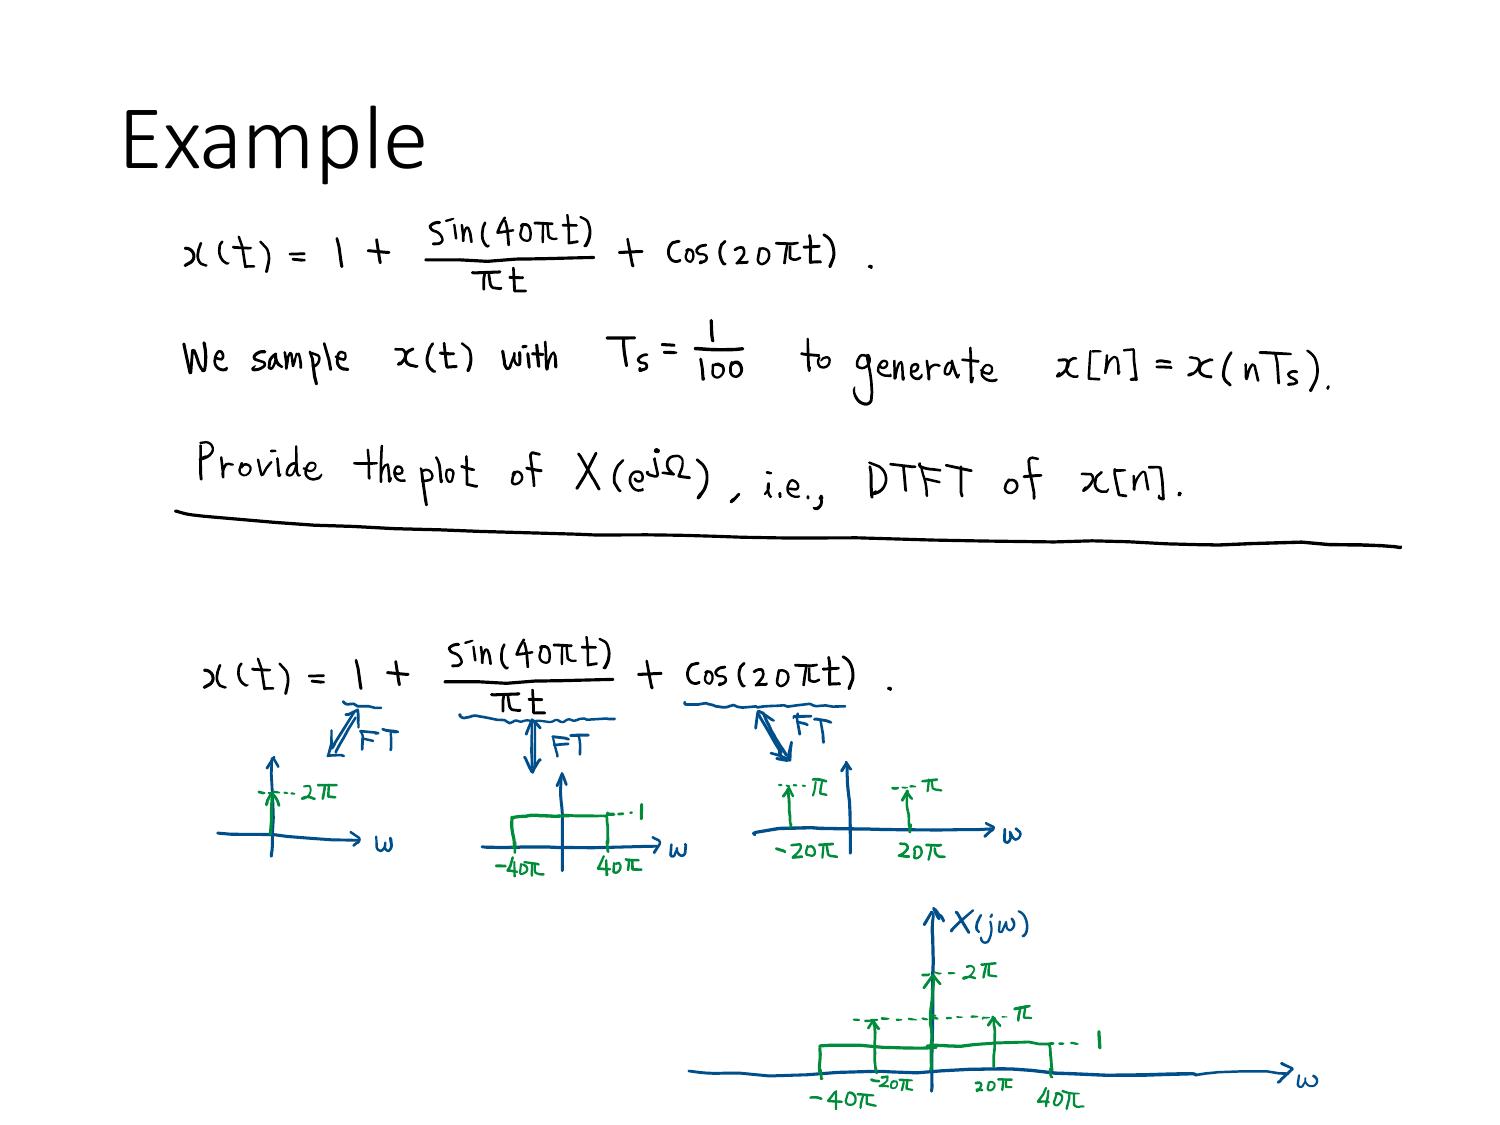 Example
x(t) = 1 + sin(40πt)/πt + cos(20πt).
We sample x(t) with Ts = 1/100 to generate x[n] = x(nTs).
Provide the plot of X(e^jΩ), i.e., DTFT of x[n].
x(t) = 1 + sin(40πt)/πt + cos(20πt).
FT FT FT
2π 1 π π
ω ω ω
-40π 40π -20π 20π
X(jω)
2π
π
1
-40π -20π 20π 40π ω